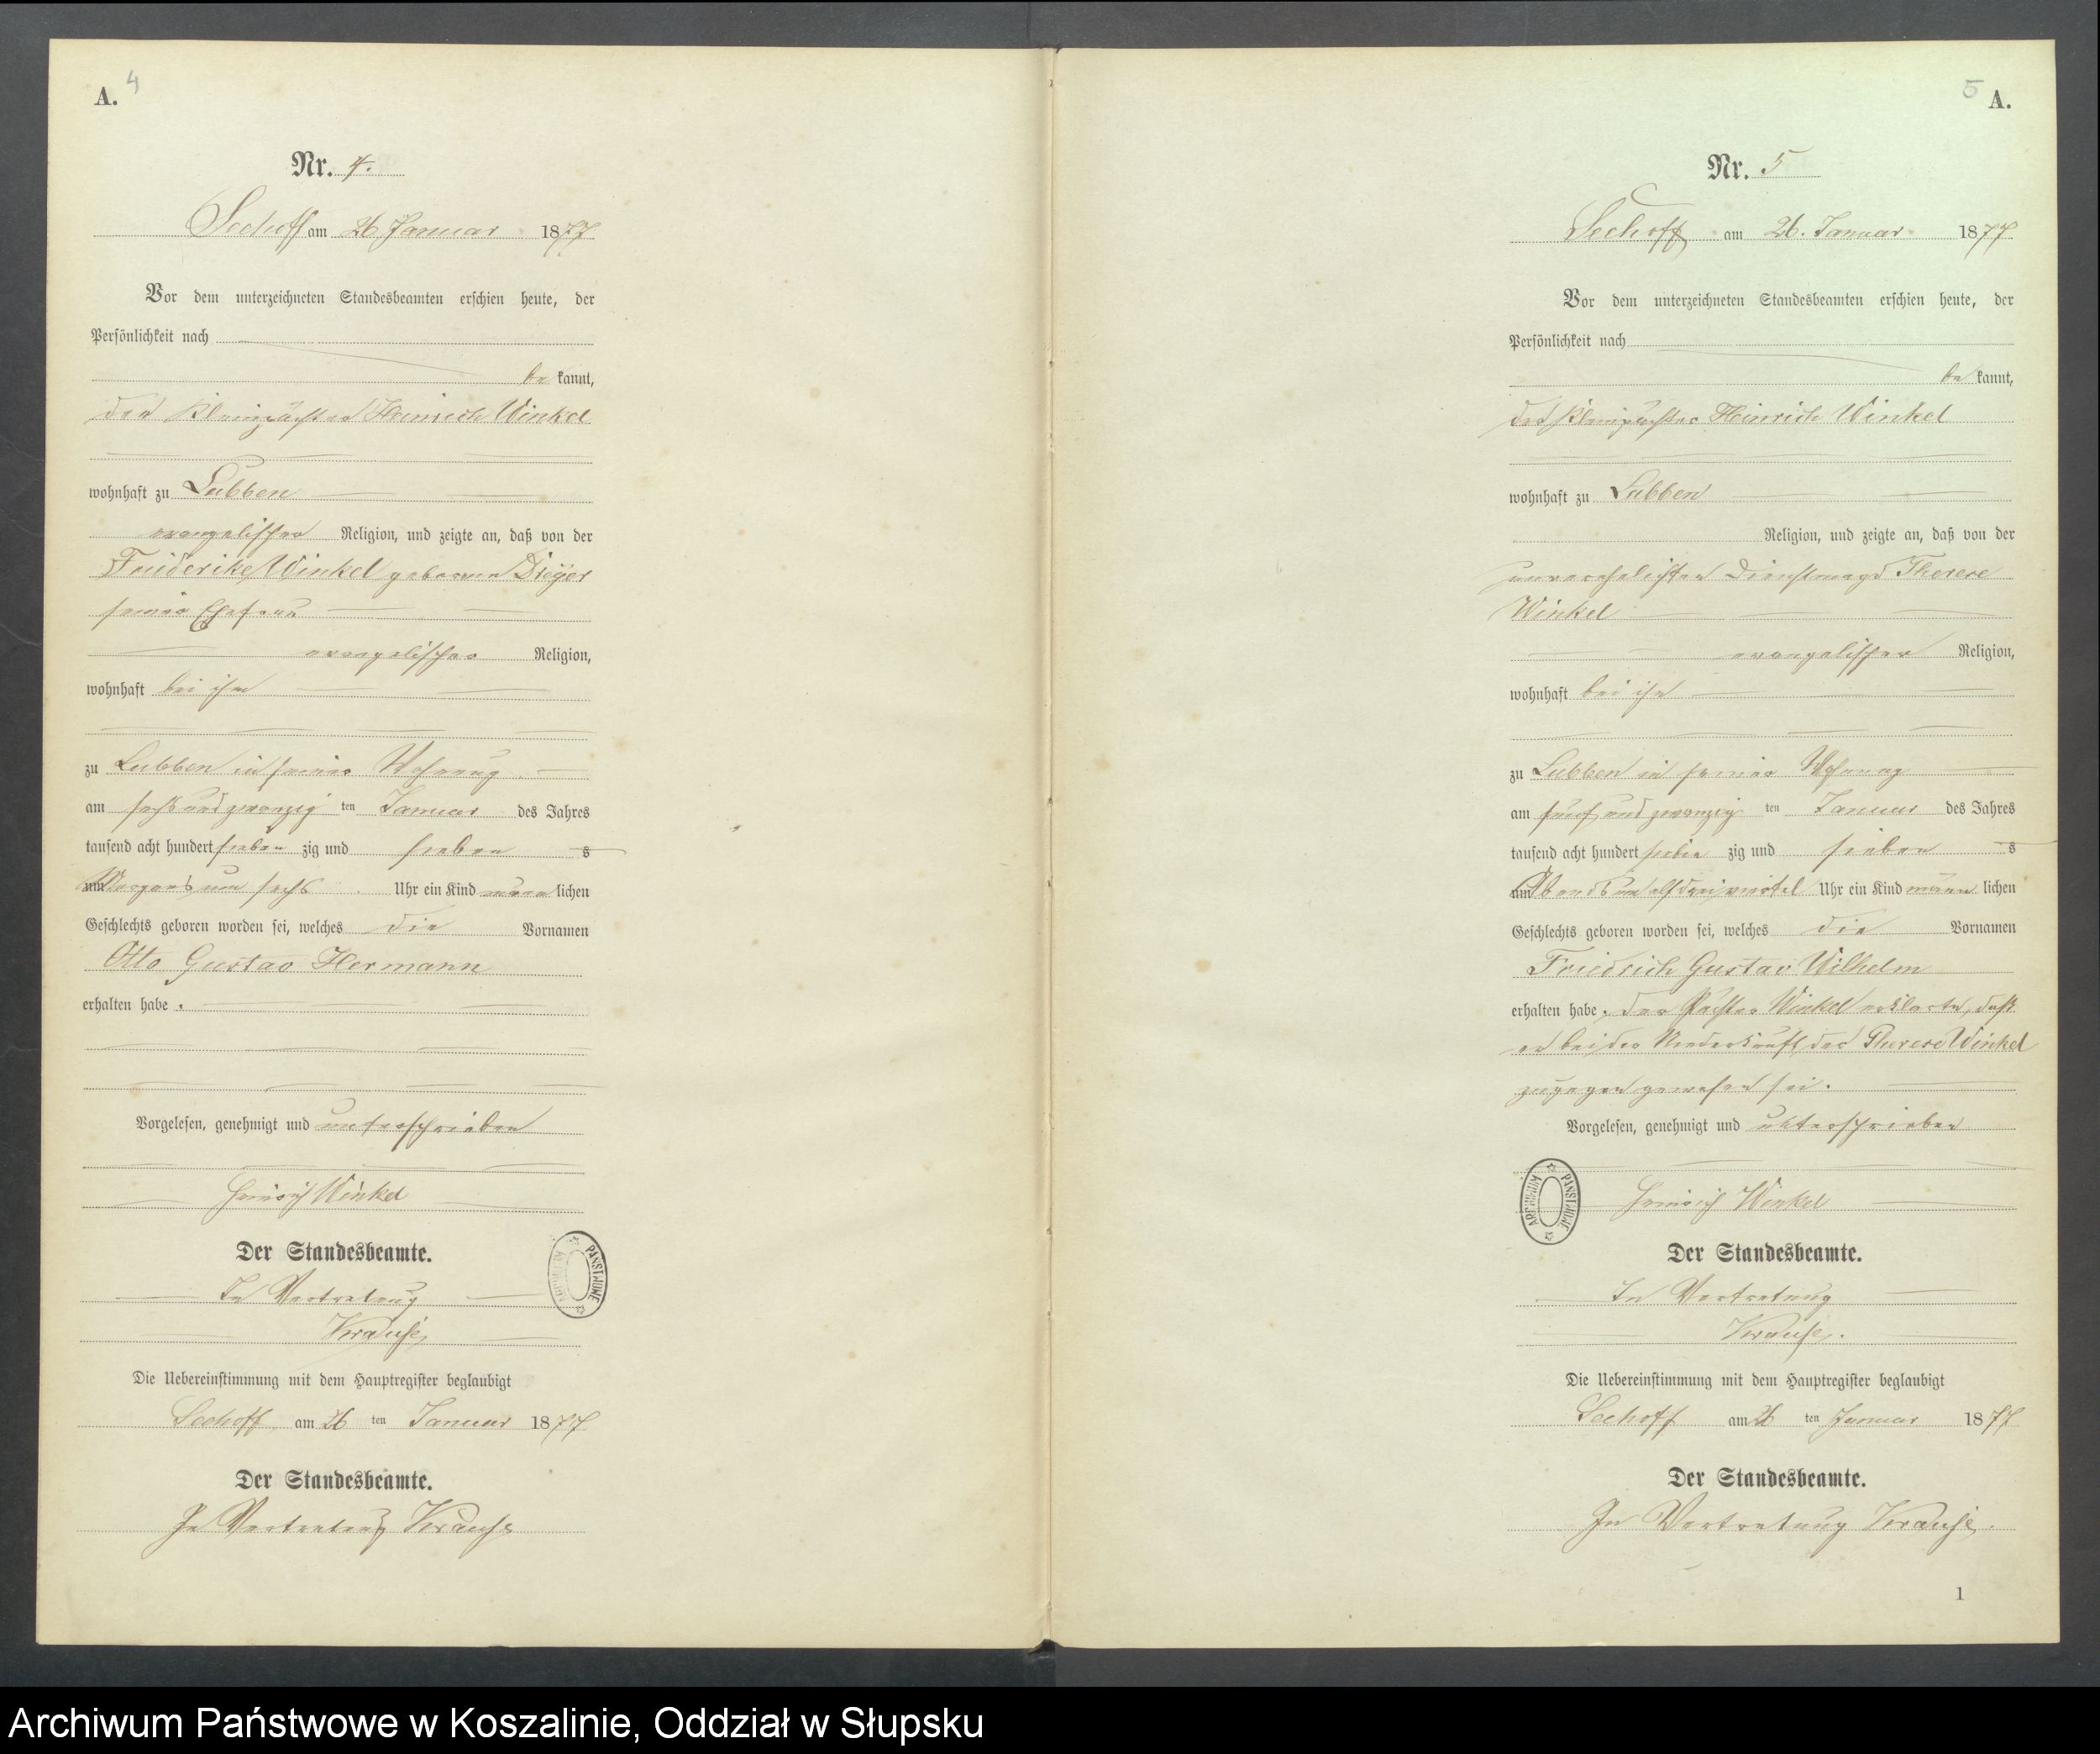 A. 4
Nr. 4.
Seehoff am 26 Januar 1877
Vor dem unterzeichneten Standesbeamten erschien heute, der
Persönlichkeit nach
be kannt,
der Kleinpächter Heinrich Winkel
wohnhaft zu Lubben
evangelischer Religion, und zeigte an, daß von der
Friederike Winkel geborenen Dreyer
seiner Ehefrau
evangelischer Religion,
wohnhaft bei ihm
zu Lubben in seiner Wohnung
am sechs und zwanzig ten Januar des Jahres
tausend acht hundert sieben zig und sieben s
um Morgens um sechs Uhr ein Kind männ lichen
Geschlechts geboren worden sei, welches die Vornamen
Otto Gustav Hermann
erhalten habe.
Vorgelesen, genehmigt und unterschrieben
Heinrich Winkel
Der Standesbeamte.
In Vertretung
Krause
ARCHIWUM PAŃSTWOWE
Die Uebereinstimmung mit dem Hauptregister beglaubigt
Seehoff am 26 ten Januar 1877
Der Standesbeamte.
In Vertretung Krause
5 A.
Nr. 5
Seehoff am 26. Januar 1877
Vor dem unterzeichneten Standesbeamten erschien heute, der
Persönlichkeit nach
be kannt,
der Kleinpächter Heinrich Winkel
wohnhaft zu Lubben
Religion, und zeigte an, daß von der
unverehelichten Dienstmagd Therese
Winkel
evangelischer Religion,
wohnhaft bei ihm
zu Lubben in seiner Wohnung
am fünf und zwanzig ten Januar des Jahres
tausend acht hundert sieben zig und sieben s
um Abends um elf dreiviertel Uhr ein Kind männ lichen
Geschlechts geboren worden sei, welches die Vornamen
Friedrich Gustav Wilhelm
erhalten habe. der Pächter Winkel erklärte, daß
er bei der Niederkunft der Therese Winkel
zugegen gewesen sei.
Vorgelesen, genehmigt und unterschrieben
ARCHIWUM PAŃSTWOWE
Heinrich Winkel
Der Standesbeamte.
In Vertretung
Krause.
Die Uebereinstimmung mit dem Hauptregister beglaubigt
Seehoff am 26 ten Januar 1877
Der Standesbeamte.
In Vertretung Krause.
1
Archiwum Państwowe w Koszalinie, Oddział w Słupsku